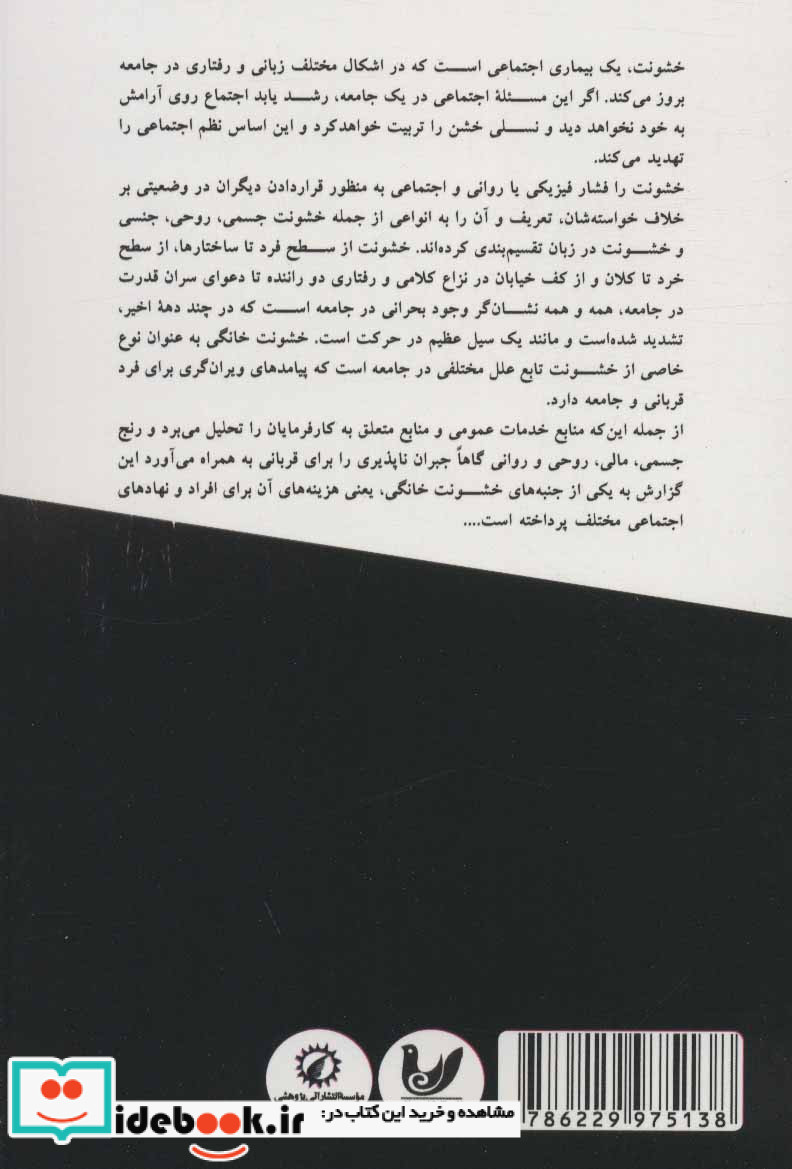 خشونت، یک بیماری اجتماعی است که در اشکال مختلف زبانی و رفتاری در جامعه
بروز می‌کند. اگر این مسئلهٔ اجتماعی در یک جامعه، رشد یابد اجتماع روی آرامش
به خود نخواهد دید و نسلی خشن را تربیت خواهدکرد و این اساس نظم اجتماعی را
تهدید می‌کند.
خشونت را فشار فیزیکی یا روانی و اجتماعی به منظور قراردادن دیگران در وضعیتی بر
خلاف خواسته‌شان، تعریف و آن را به انواعی از جمله خشونت جسمی، روحی، جنسی
و خشونت در زبان تقسیم‌بندی کرده‌اند. خشونت از سطح فرد تا ساختارها، از سطح
خرد تا کلان و از کف خیابان در نزاع کلامی و رفتاری دو راننده تا دعوای سران قدرت
در جامعه، همه و همه نشان‌گر وجود بحرانی در جامعه است که در چند دههٔ اخیر،
تشدید شده‌است و مانند یک سیل عظیم در حرکت است. خشونت خانگی به عنوان نوع
خاصی از خشونت تابع علل مختلفی در جامعه است که پیامدهای ویران‌گری برای فرد
قربانی و جامعه دارد.
از جمله این‌که منابع خدمات عمومی و منابع متعلق به کارفرمایان را تحلیل می‌برد و رنج
جسمی، مالی، روحی و روانی گاهاً جبران ناپذیری را برای قربانی به همراه می‌آورد این
گزارش به یکی از جنبه‌های خشونت خانگی، یعنی هزینه‌های آن برای افراد و نهادهای
اجتماعی مختلف پرداخته است....
مؤسسهٔ انتشاراتی پژوهشی
مشاهده و خرید این کتاب در:
idebook.ir
786229 975138